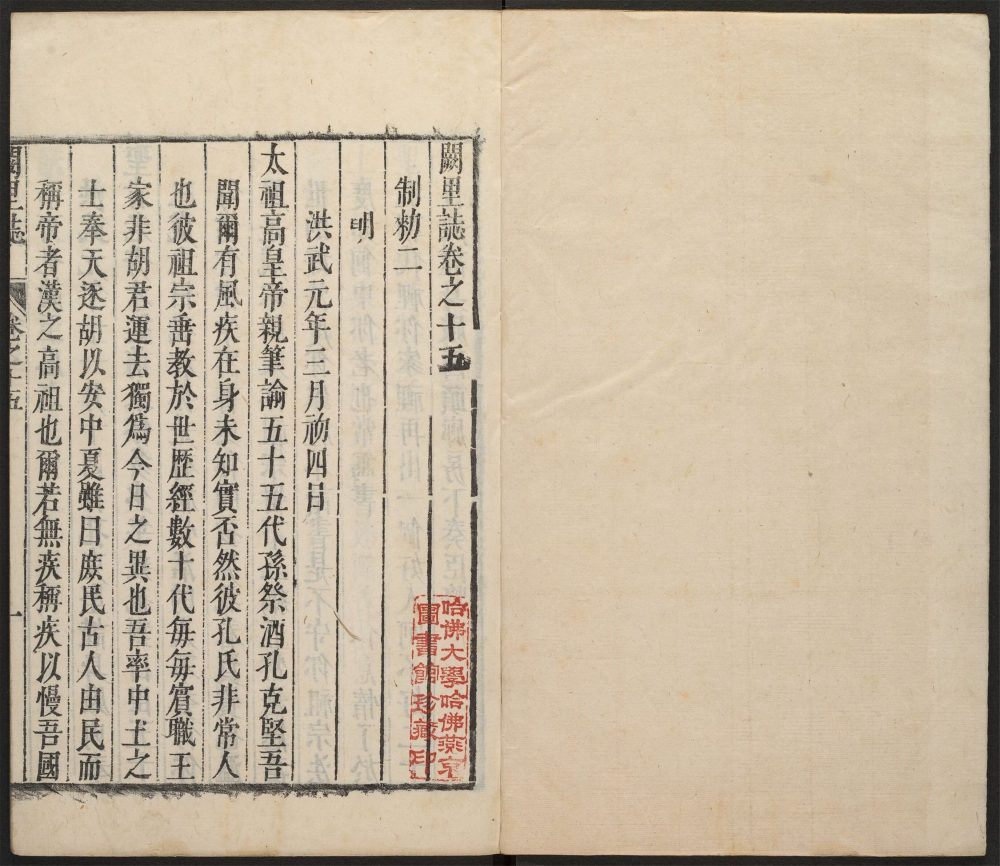 闕里誌卷之十五
制勑二
明
洪武元年三月初四日
太祖高皇帝親筆諭五十五代孫祭酒孔克堅吾
聞爾有風疾在身未知實否然彼孔氏非常人
也彼祖宗垂教於世歷經數十代每每賓職王
家非胡君運去獨爲今日之異也吾率中土之
士奉天逐胡以安中夏雖曰庶民古人由民而
稱帝者漢之高祖也爾若無疾稱疾以慢吾國
闕里誌
卷之十五
一
哈佛大學哈佛燕京
圖書館珍藏印